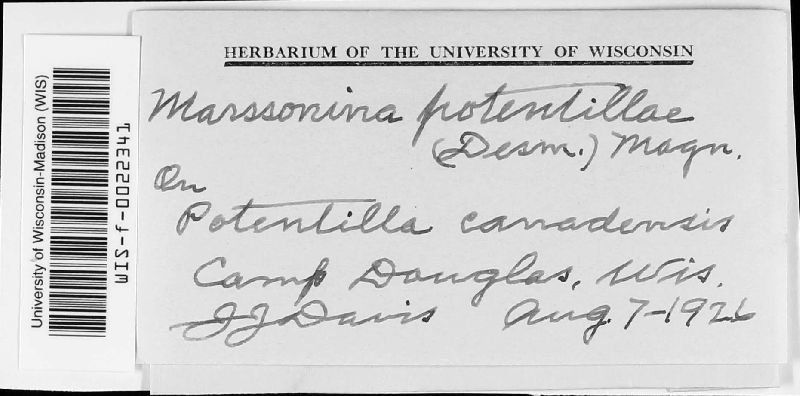 HERBARIUM OF THE UNIVERSITY OF WISCONSIN
Marssonina potentillae
(Desm.) Magn.
On
Potentilla canadensis
Camp Douglas, Wis.
JJ Davis Aug. 7-1926
University of Wisconsin-Madison (WIS)
WIS-f-0022341